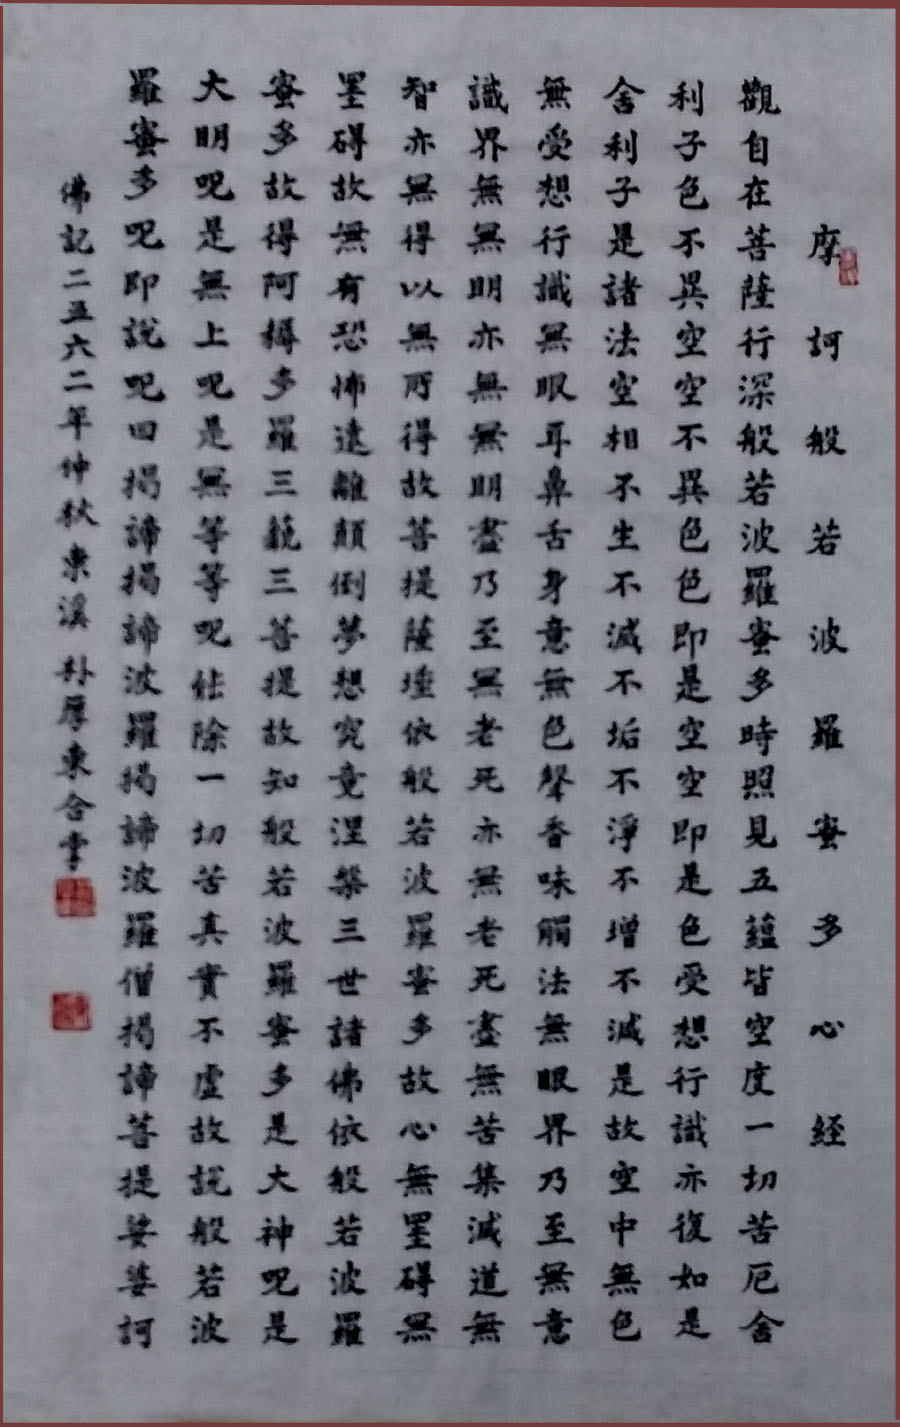 摩訶般若波羅蜜多心経
觀自在菩薩行深般若波羅蜜多時照見五蘊皆空度一切苦厄舍
利子色不異空空不異色色即是空空即是色受想行識亦復如是
舍利子是諸法空相不生不滅不垢不淨不增不減是故空中無色
無受想行識無眼耳鼻舌身意無色聲香味觸法無眼界乃至無意
識界無無明亦無無明盡乃至無老死亦無老死盡無苦集滅道無
智亦無得以無所得故菩提薩埵依般若波羅蜜多故心無罣碍無
罣碍故無有恐怖遠離顛倒夢想究竟涅槃三世諸佛依般若波羅
蜜多故得阿耨多羅三藐三菩提故知般若波羅蜜多是大神呪是
大明呪是無上呪是無等等呪能除一切苦真實不虛故說般若波
羅蜜多呪即說呪曰揭諦揭諦波羅揭諦波羅僧揭諦菩提娑婆訶
佛記二五六二年仲秋東溪 朴厚東合掌